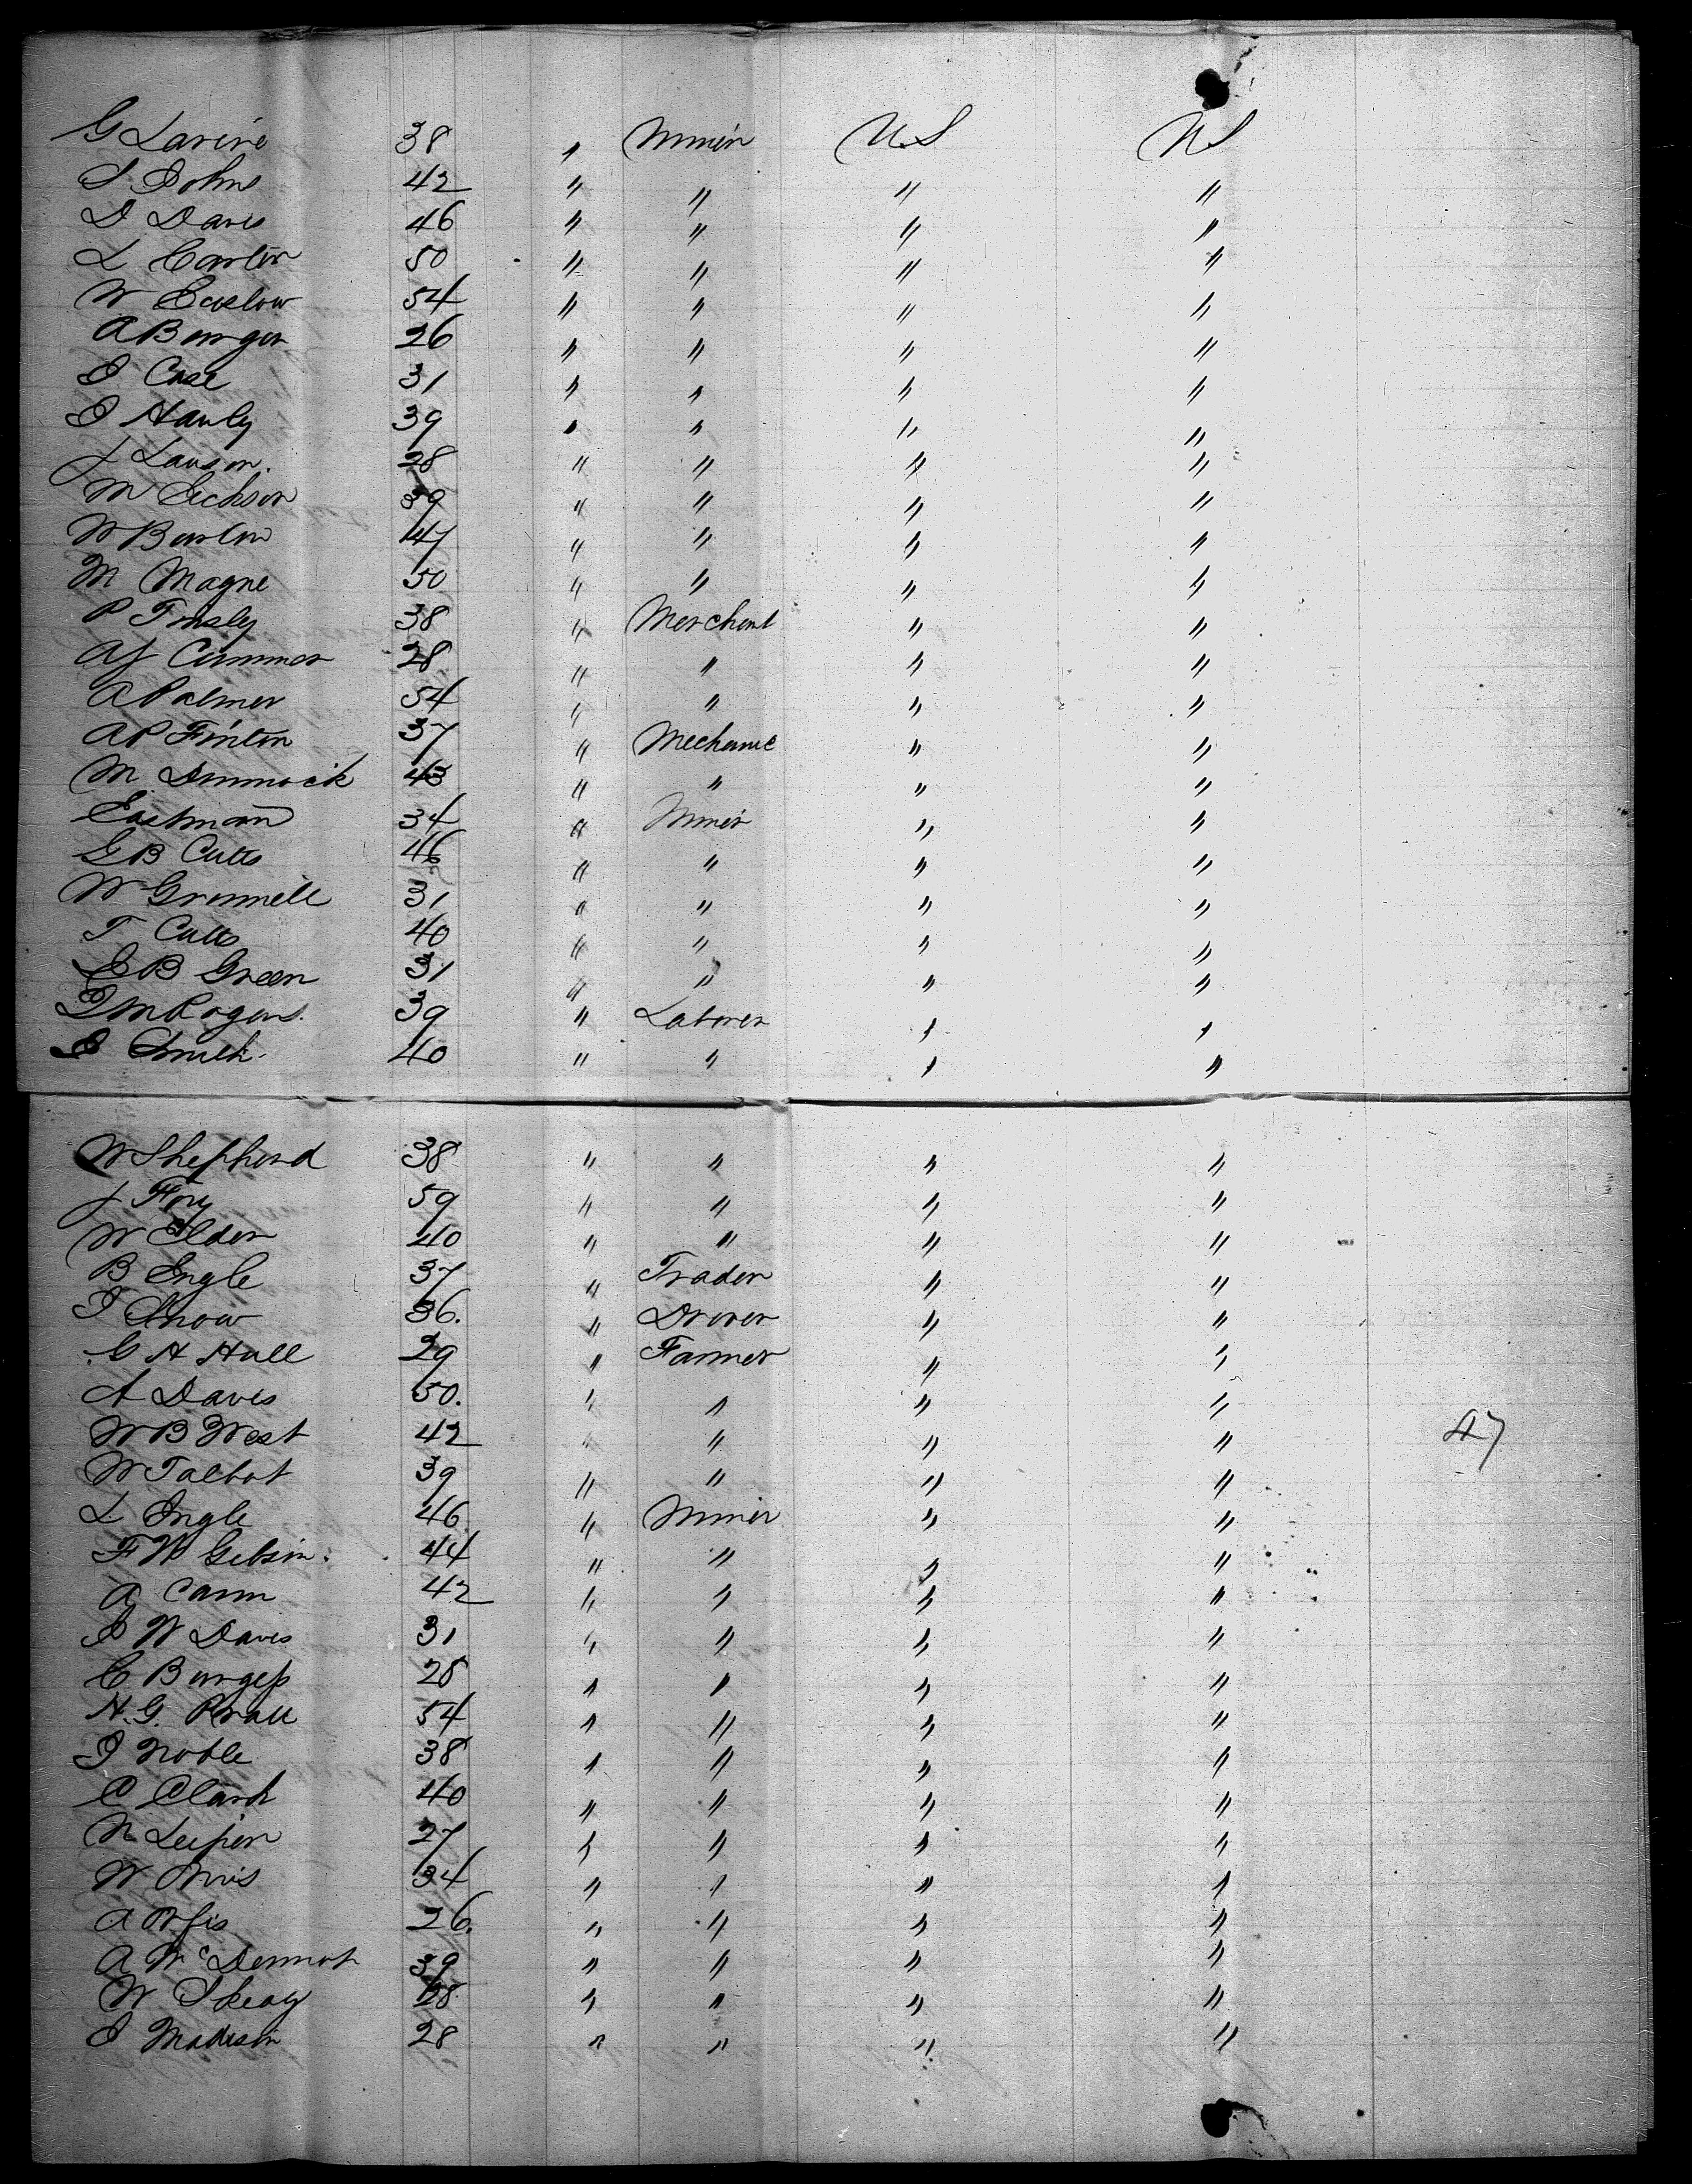 G Lavine 38 " Miner U.S U.S
S Johns 42 " " " "
D Davis 46 " " " "
L Carter 50 " " " "
W Barlow 54 " " " "
A Burger 26 " " " "
J Case 31 " " " "
J Hanly 39 " " " "
J Lawson. 28 " " " "
M Jackson 39 " " " "
W Barlow 47 " " " "
M Magne 50 " " " "
P Tinsley 38 " Merchant " "
A J Cummer 28 " " " "
A Palmer 54 " " " "
A P Finton 37 " Mechanic " "
M. Dimmock 43 " " " "
Eastman 34 " Miner " "
G B Cutts 46 " " " "
W Grinnell 31 " " " "
T Cutts 40 " " " "
E B Green 31 " " " "
J M Rogers. 39 " Laborer " "
J Smith. 40 " " " "
W Shepherd 38 " " " "
J Foy 59 " " " "
W Elder 40 " " " "
B Engle 37 " Trader " "
J Snow 36. " Drover " "
G H Hall 29 " Farmer " "
A Davis 50. " " " "
W B West 42 " " " " 47
W Talbot 39 " " " "
L Engle 46 " Miner " "
F W Gibson. 44 " " " "
A Cann 42 " " " "
J W Davis 31 " " " "
C Burgess 28 " " " "
H. G. Pratt 54 " " " "
J Noble 38 " " " "
C Clark 40 " " " "
N Leiper 27 " " " "
W 34 " " " "
A 26. " " " "
A McDermot 39 " " " "
W 28 " " " "
J Madison 28 " " " "